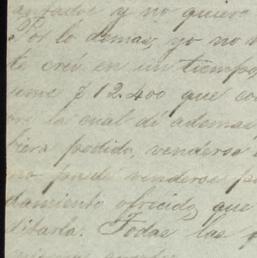 enfador y no quiero
Por lo demas, yo no
te creí en un tiempo,
sume $12.400 que co
por la cual dí ademas
biera podido, venderse
no puede venderse
damiento ofrecido, que
ditarla. Todas las